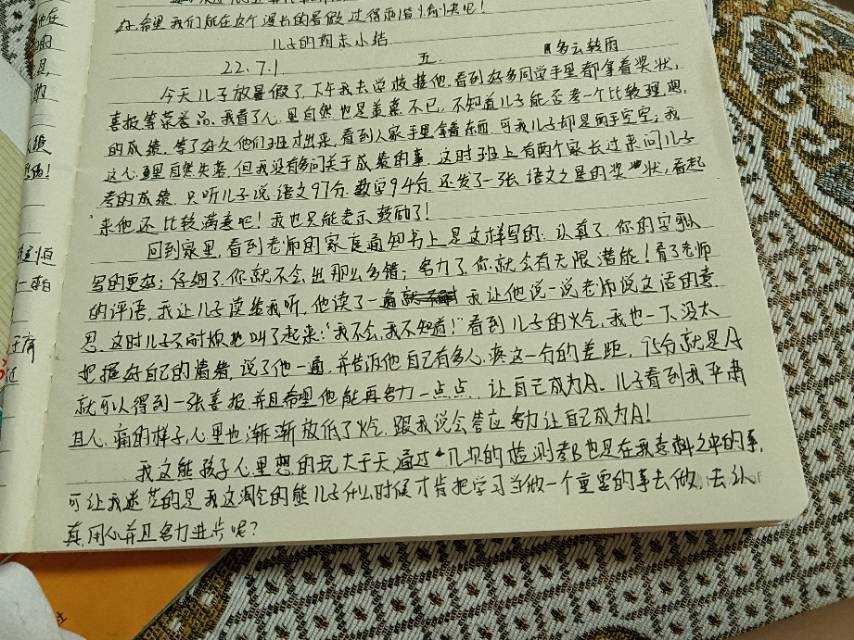 好,希望我们能在这个漫长的暑假过得
儿子的期末小结
22.7.1 五 多云转雨
今天儿子放暑假了,下午我去学校接他,看到好多同学手里都拿着奖状,
喜报等荣誉品。我看了人,里自然也是羡慕不已,不知道儿子能否考一个比较理想
的成绩。等了好久他们班才出来,看到人家手里拿着东西,可我儿子却是两手空空,我
这心里自然失落,但我没有多问关于成绩的事,这时班上有两个家长过来问儿子
考的成绩,只听儿子说语文97分,数学94分,还发了一张语文之星的奖状,看起
来他还比较满意吧!我也只能表示鼓励了!
回到家里,看到老师的家庭通知书上是这样写的:认真了,你的字
写的更好;仔细了,你就不会出那么多错;努力了,你就会有无限潜能!看了老师
的评语,我让儿子读给我听,他读了一遍 我让他说一说老师说这话的意
思,这时儿子不耐烦地叫了起来:"我不会,我不知道!"看到儿子的火气,我也一下没太
把握好自己的情绪,说了他一通,并告诉他自己有多心疼这一分的差距,95分就是A
就可以得到一张喜报,并且希望他能再努力一点点,让自己成为A。儿子看到我严肃
且心痛的样子,心里也渐渐放低了火气,跟我说会答应努力让自己成为A!
我这熊孩子心里想的玩大于天,通过几次的检测考也是在我意料之中的事,
可让我迷茫的是我这淘气的熊儿子什么时候才肯把学习当做一个重要的事去做,去认
真,用心并且努力进步呢?